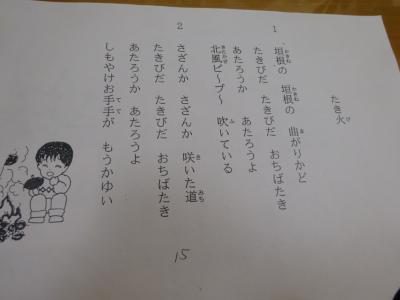 たき火
1
垣根の 垣根の 曲がりかど
たきびだ たきびだ おちばたき
あたろうか あたろうよ
北風ピ～プ～ 吹いている
2
さざんか さざんか 咲いた道
たきびだ たきびだ おちばたき
あたろうか あたろうよ
しもやけお手手が もうかゆい
15